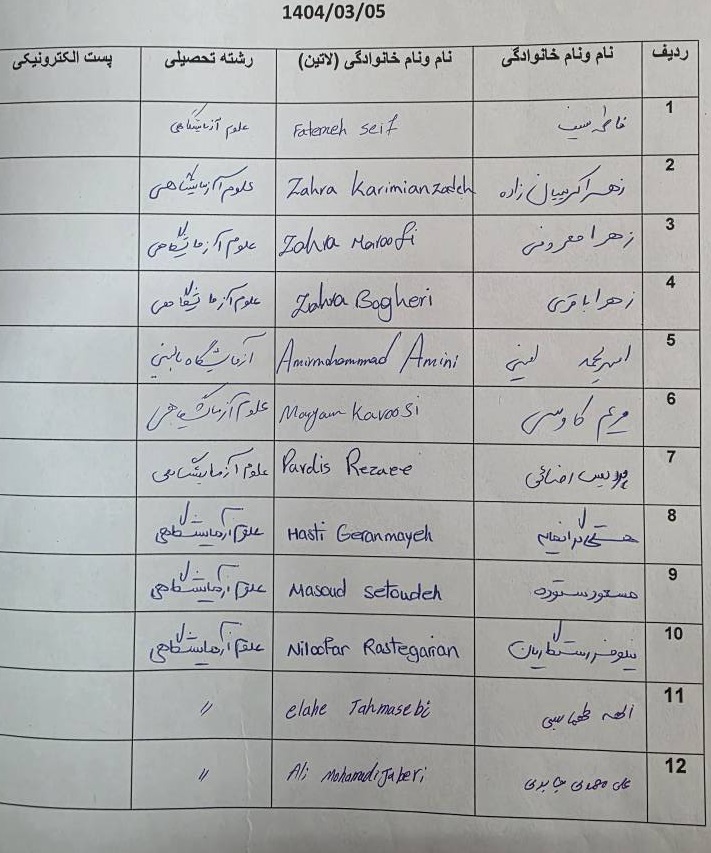 1404/03/05
ردیف نام ونام خانوادگی نام ونام خانوادگی (لاتین) رشته تحصیلی پست الکترونیکی
1 فاطمه سیف Fatemeh Seif علوم آزمایشگاهی
2 زهرا کریمیان زاده Zahra Karimianzadeh علوم آزمایشگاهی
3 زهرا معروفی Zahra Maroofi علوم آزمایشگاهی
4 زهرا باقری Zahra Bagheri علوم آزمایشگاهی
5 امیرمحمد امینی Amirmohammad Amini آزمایشگاه بالینی
6 مریم کاوسی Maryam Kavoosi علوم آزمایشگاهی
7 پردیس رضائی Pardis Rezaee علوم آزمایشگاهی
8 هستی گرانمایه Hasti Geranmayeh علوم آزمایشگاهی
9 مسعود ستوده Masoud Setoudeh علوم آزمایشگاهی
10 نیلوفر رستگاریان Niloofar Rastegarian علوم آزمایشگاهی
11 الهه طهماسبی elahe Tahmasebi "
12 علی محمدی جابری Ali Mohamadi Jaberi "